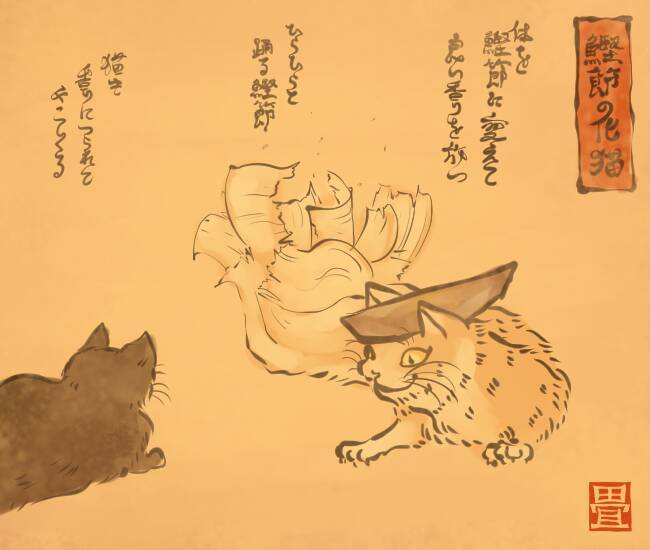 鰹節の化猫
体を
鰹節に変えて
良い香りを放つ
ひらひらと
踊る鰹節
猫も
香りにつられて
やってくる
畳